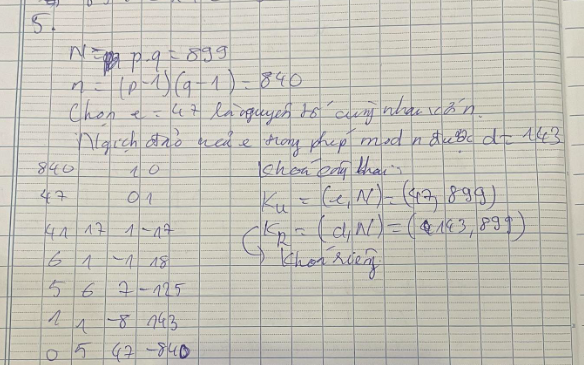 5.
N = p.q = 899
n = (p-1)(q-1) = 840
Chọn e = 47 là nguyên tố cùng nhau với n.
Nghịch đảo của e trong phép mod n được d = 143
840 1 0
47 0 1
41 17 1 -17
6 1 -1 18
5 6 7 -125
1 1 -8 143
0 5 47 -840
Khoá công khai:
Ku = (e, N) = (47, 899)
KR = (d, N) = (143, 899)
Khoá riêng